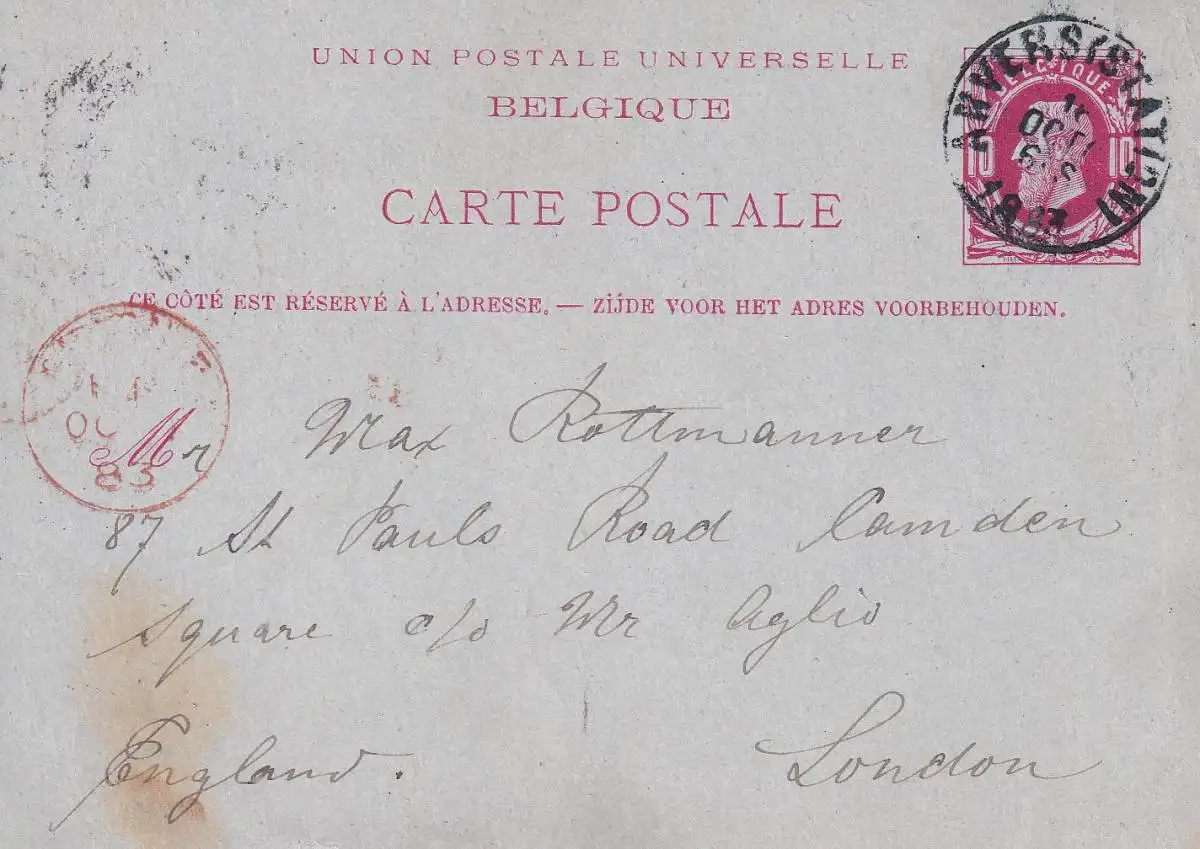 UNION POSTALE UNIVERSELLE
BELGIQUE
CARTE POSTALE
BELGIQUE
10 10
ANVERS (STATION)
OCT
1883
CE CÔTÉ EST RÉSERVÉ À L'ADRESSE. — ZIJDE VOOR HET ADRES VOORBEHOUDEN.
OC
83
Mr Max Rottmanner
87 St Pauls Road Camden
Square c/o Mr Aglio
England. London